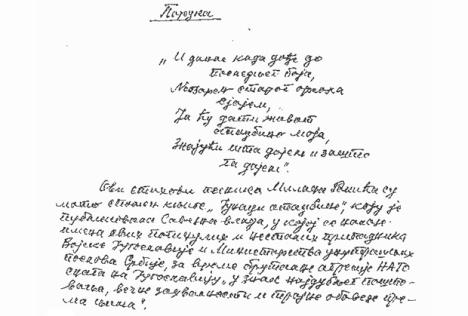 Порука
„И данас када дође до
последњег боја,
Неозарен старог ореола
сјајем,
Ја ћу дати живот
отаџбино моја,
Знајући шта дајем и зашто
га дајем“.
Ови стихови песника Милана Ракића су
мото спомен књиге „Јунаци отаџбине“, коју је
публиковала Савезна влада, у којој се налазе
имена свих погинулих и несталих припадника
Војске Југославије и Министарства унутрашњих
послова Србије, за време бруталне агресије НАТО
пакта на Југославију „у знак најдубљег пошто-
вања, вечне захвалности и трајне обавезе пре-
ма њима“.